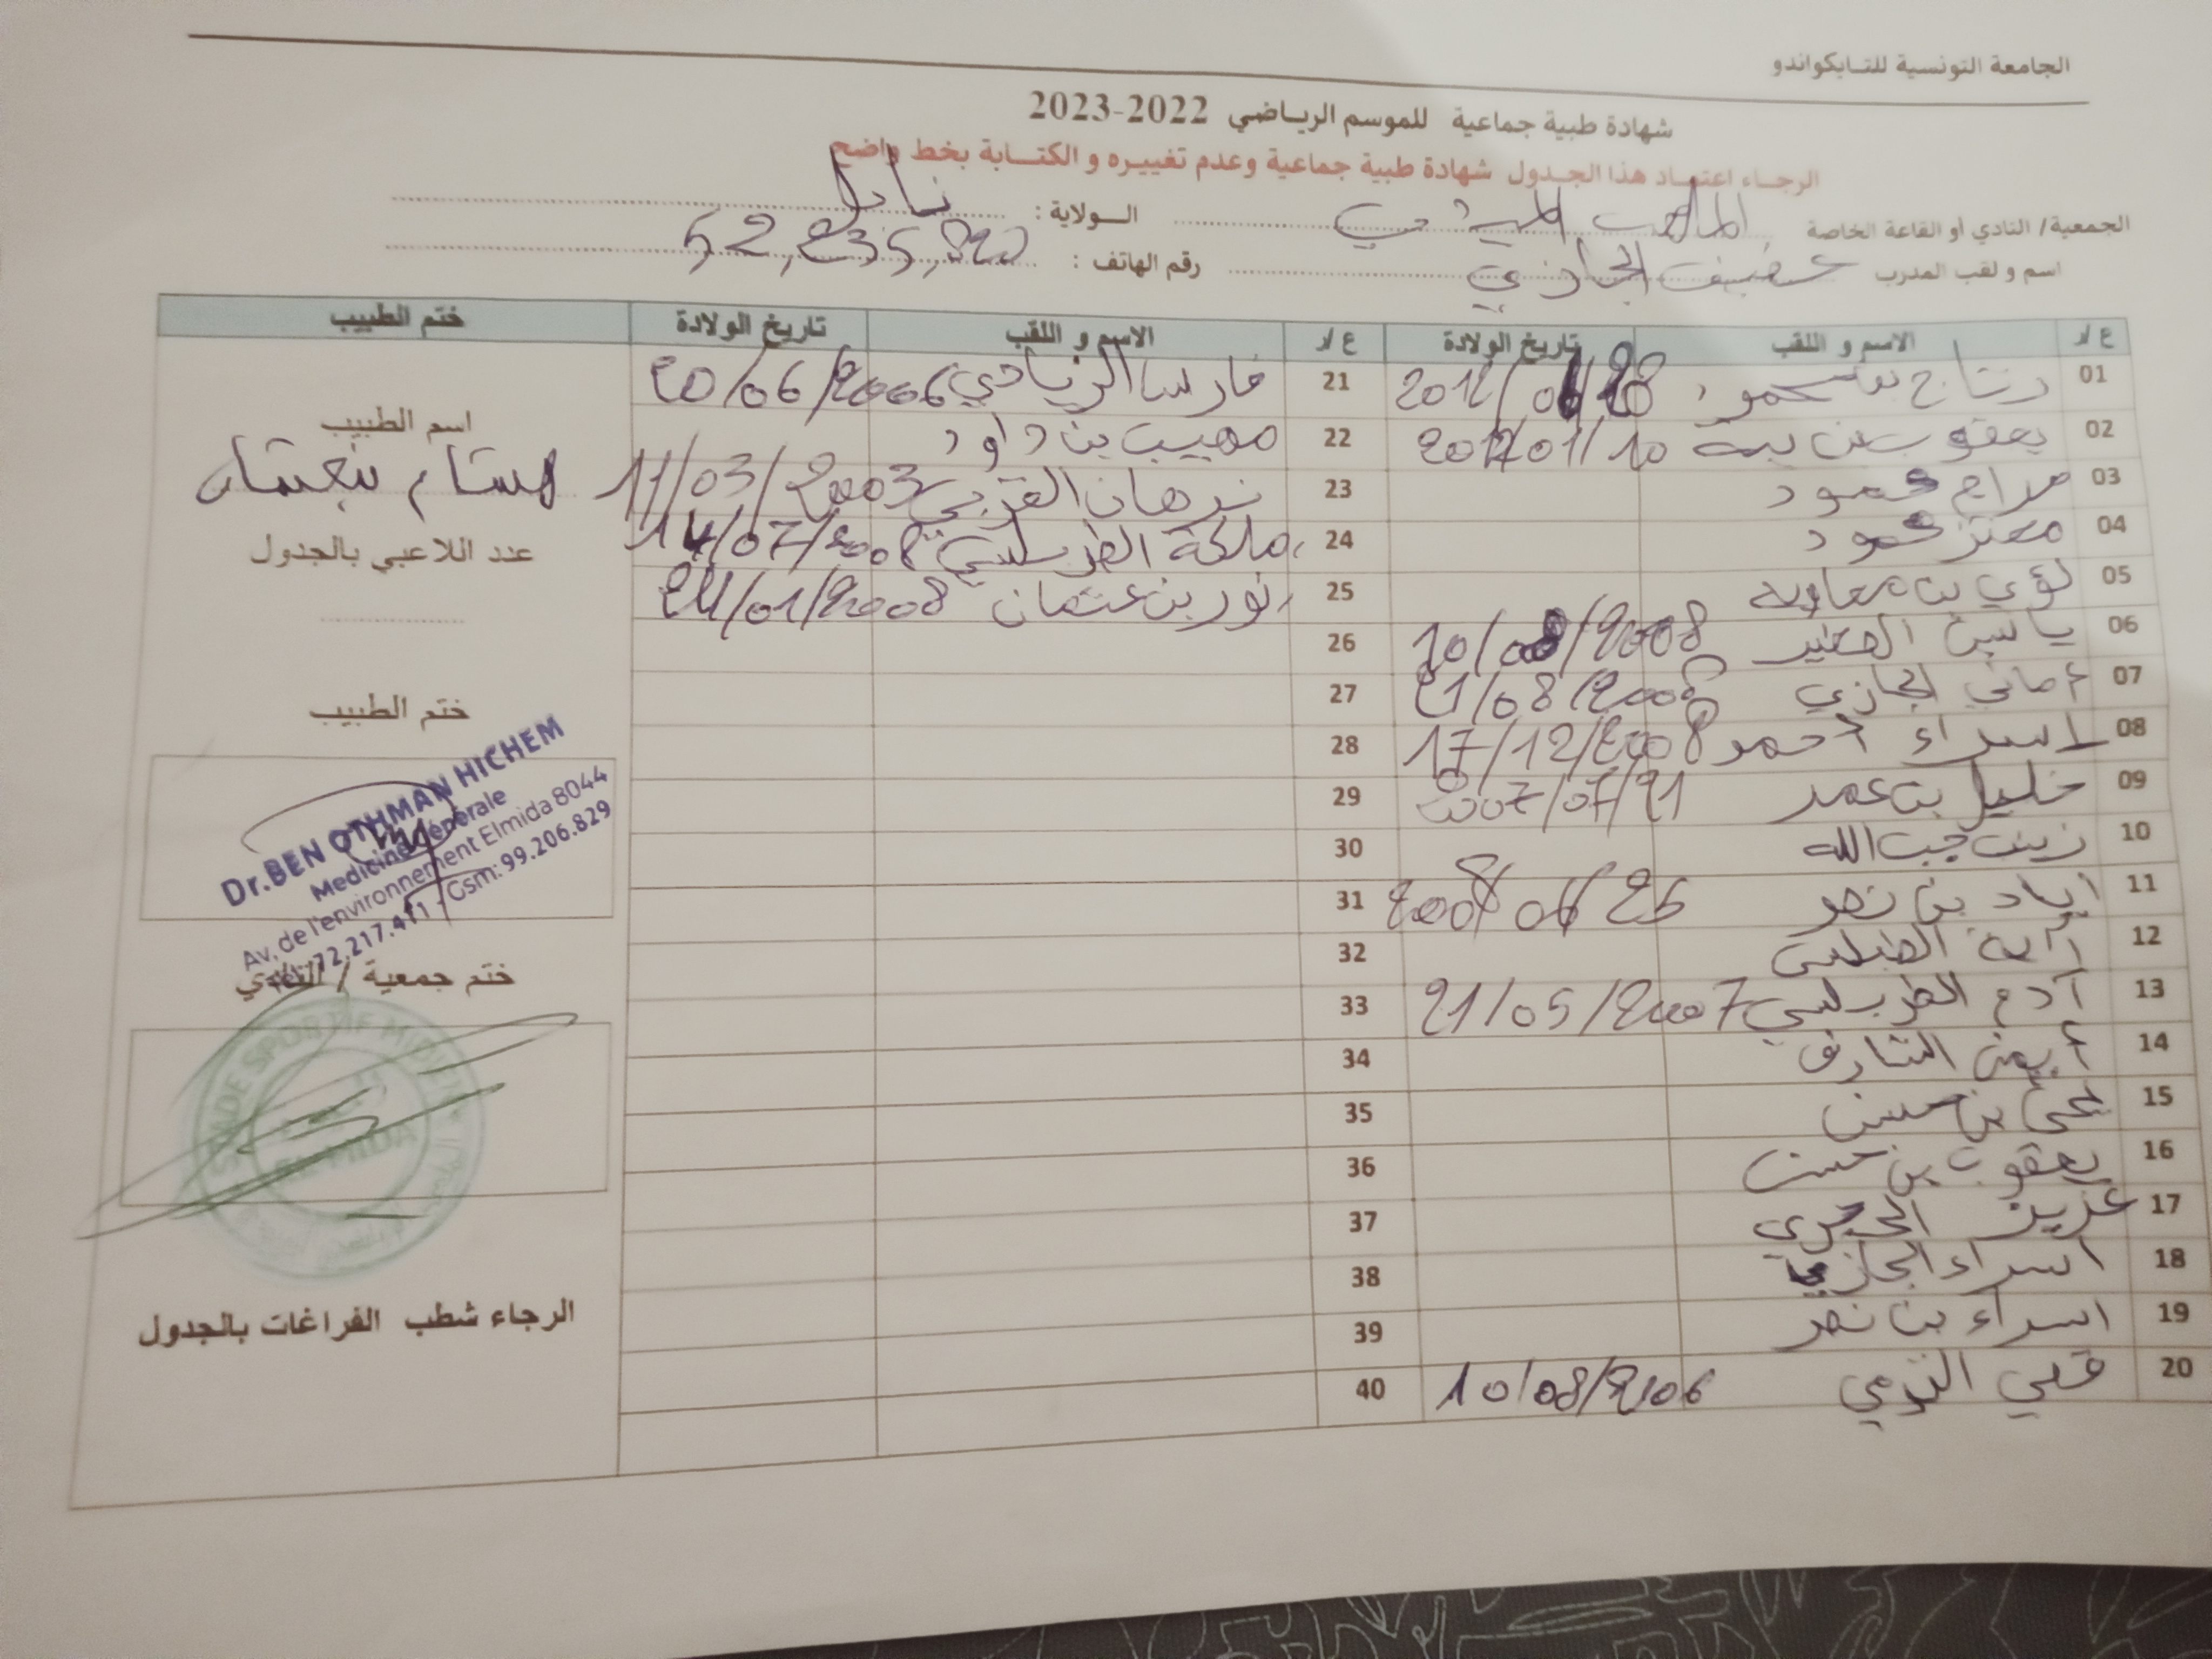 الجامعة التونسية للتايكواندو
شهادة طبية جماعية للموسم الرياضي 2022-2023
الرجاء اعتماد هذا الجدول شهادة طبية جماعية وعدم تغييره و الكتابة بخط واضح
الجمعية/ النادي أو القاعة الخاصة الولاية : نابل
اسم و لقب المدرب الحجازي رقم الهاتف :
ع/ر الاسم و اللقب تاريخ الولادة ع/ر الاسم و اللقب تاريخ الولادة ختم الطبيب
01 21 فارس الزيادي 20/06/2006
02 يعقوب بن بية 10/01 22 مهيب بن داود
اسم الطبيب
03 محمود 23 11/03/2003
هشام بنعثمان
04 معتز محمود 24 الطرابلسي 14/07/2008
عدد اللاعبي بالجدول
05 لؤي بن معاوية 25 نور بن عثمان 24/01/2008
06 ياسين 10/08/2008 26
07 أماني الحجازي 21/08/2008 27
ختم الطبيب
08 اسراء أحمد 17/12/2008 28
09 خليل بن عمر 21/07/2007 29
10 زينب جب الله 30
11 اياد بن نصر 26/06/2008 31
12 آية 32
13 آدم الطرابلسي 21/05/2007 33
14 أيمن الشارف 34
15 يحيى بن حسين 35
16 يعقوب بن حسن 36
17 عزيز 37
18 اسراء الحجازي 38
19 اسراء بن نصر 39
20 قصي 10/08/2006 40
Dr.BEN OTHMAN HICHEM
Medicine Générale
Av. de l'environnement Elmida 8044
Tél: 72.217.411 - Gsm: 99.206.829
ختم جمعية / النادي
STADE SPORTIF MIDI
EL MIDA
الرجاء شطب الفراغات بالجدول